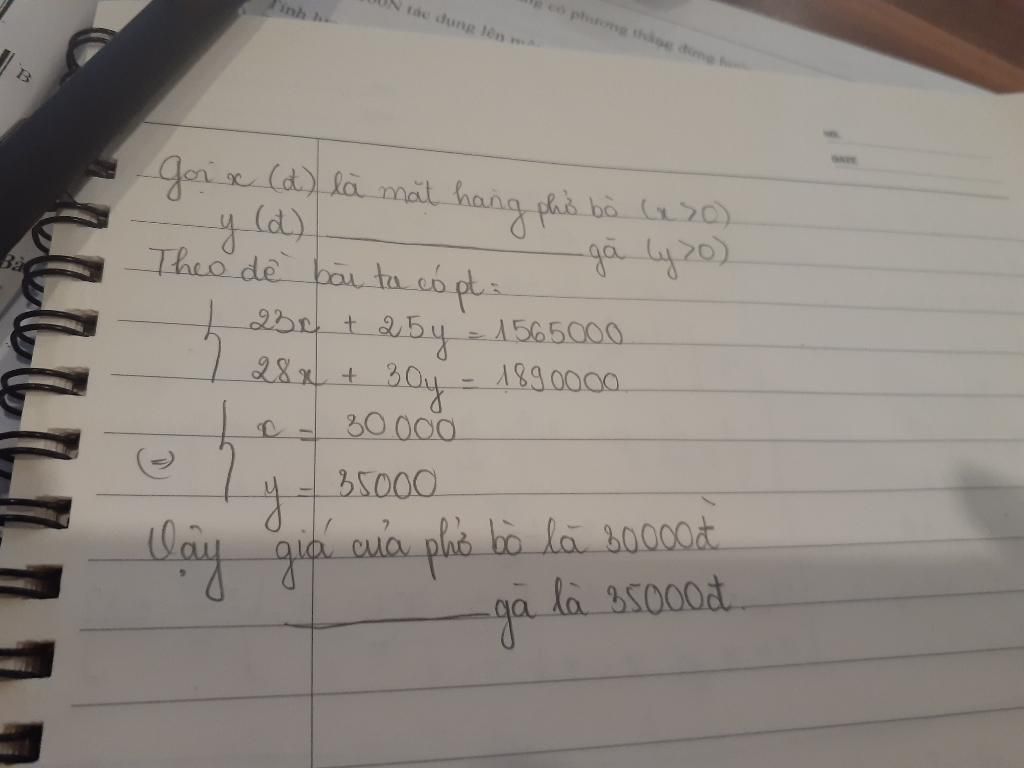 Tính h
00N tác dụng lên mộ
g có phương thẳng đứng
B
NO.
DATE
Gọi x (đ) là mặt hàng phở bò (x>0)
y (đ) ________ gà (y>0)
Theo đề bài ta có pt:
{ 23x + 25y = 1565000
{ 28x + 30y = 1890000
(=) { x = 30000
{ y = 35000
Vậy giá của phở bò là 30000đ
________ gà là 35000đ.